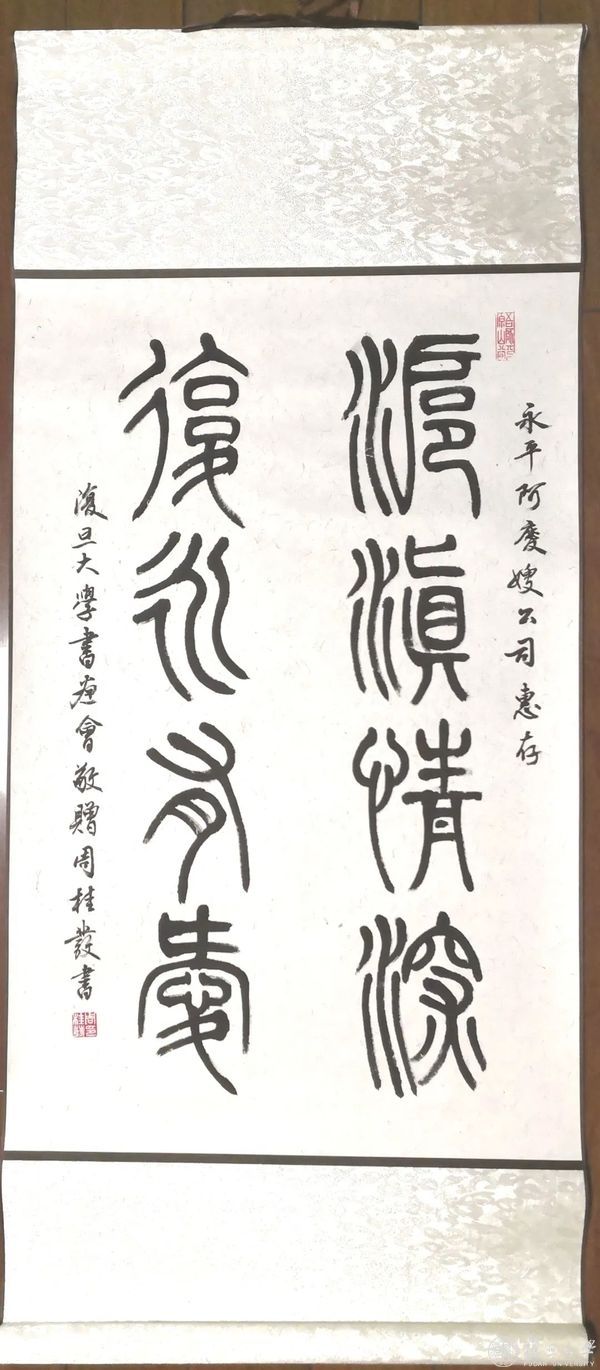 永平阿慶嫂公司惠存
滬滇情深
復永有愛
復旦大學書畫會敬贈周桂發書
FUDAN UNIVERSITY